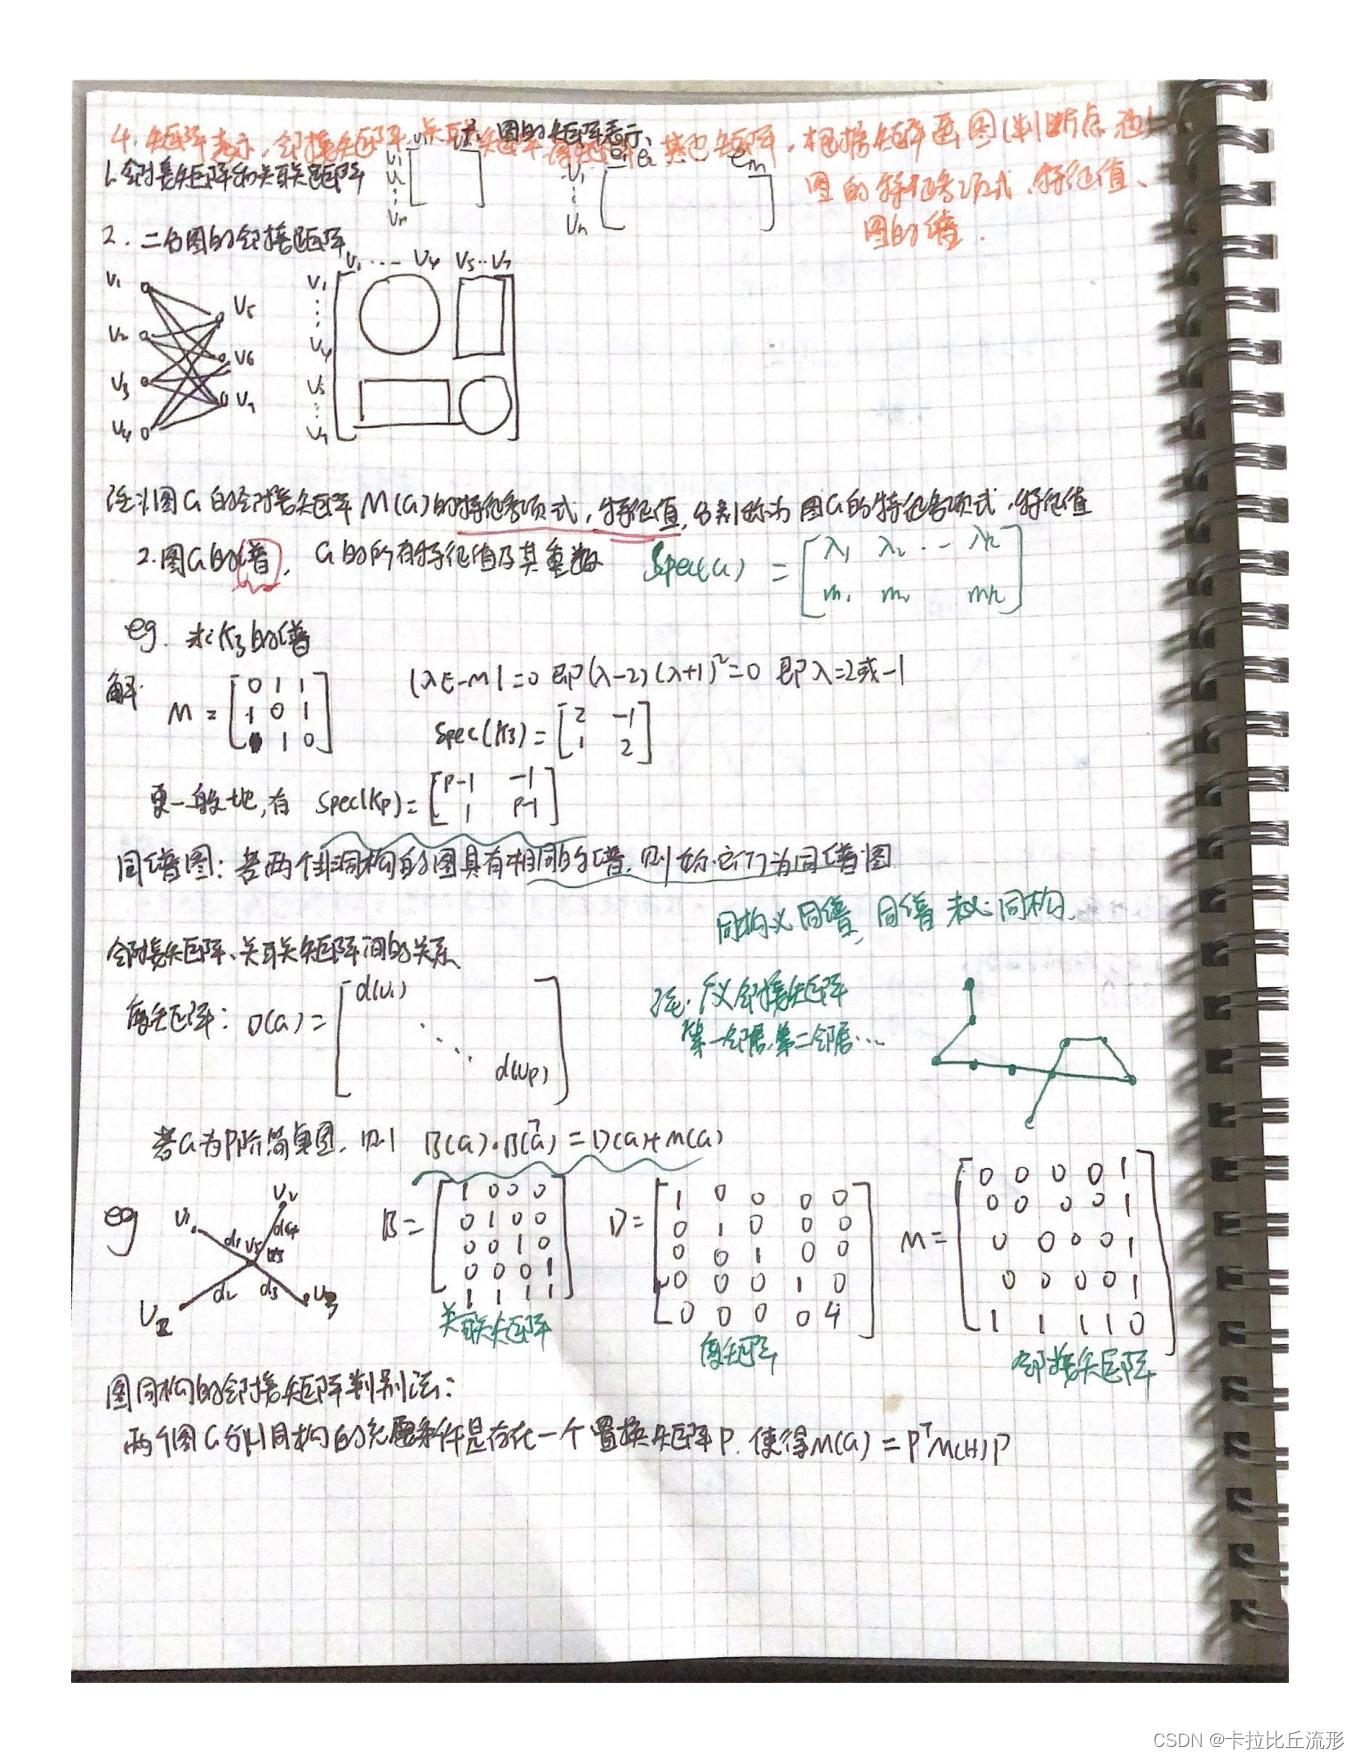 4. 矩阵表示,邻接矩阵,关联矩阵 其它矩阵,根据矩阵画图(判断点 边)
图的矩阵表示、
图的特征多项式、特征值、
图的谱.
1. 邻接矩阵和关联矩阵
v1 vn e1 e2 em
v1 vn v1 vn
2. 二分图的邻接矩阵
v1 … v4 v5 … v7
v1 v5 v1
v2 v6 v4
v3 v7 v5
v4 v7
注:1.图G的邻接矩阵M(G)的特征多项式,特征值,分别称为图G的特征多项式,特征值
2.图G的谱, G的所有特征值及其重数 Spec(G) = [λ1 λ2 … λn
m1 m2 mn]
eg. 求K3的谱
解: M = [0 1 1
1 0 1
1 0]
|λE-M|=0 即(λ-2)(λ+1)²=0 即λ=2或-1
Spec(K3) = [2 -1
1 2]
更一般地,有 Spec(Kp) = [P-1 -1
1 P-1]
同谱图:若两个非同构的图具有相同的谱,则称它们为同谱图
同构必同谱,同谱未必同构.
邻接矩阵、关联矩阵间的关系
度矩阵: D(G) = [d(v1)
⋱
d(vp)]
注:广义邻接矩阵
第一邻居,第二邻居…
若G为P阶简单图,则 B(G)·B(G)ᵀ = D(G)+M(G)
eg v1 v2 v5 d1 d4 d2 d3
B = [1 0 0 0
0 1 0 0
0 0 1 0
0 0 0 1
1 1 1 1]
关联矩阵
D = [1 0 0 0 0
0 1 0 0 0
0 0 1 0 0
0 0 0 1 0
0 0 0 0 4]
度矩阵
M = [0 0 0 0 1
0 0 0 0 1
0 0 0 0 1
0 0 0 0 1
1 1 1 1 0]
邻接矩阵
图同构的邻接矩阵判别法:
两个图G与H同构的充要条件是存在一个置换矩阵P,使得M(G) = PᵀM(H)P
CSDN @卡拉比丘流形